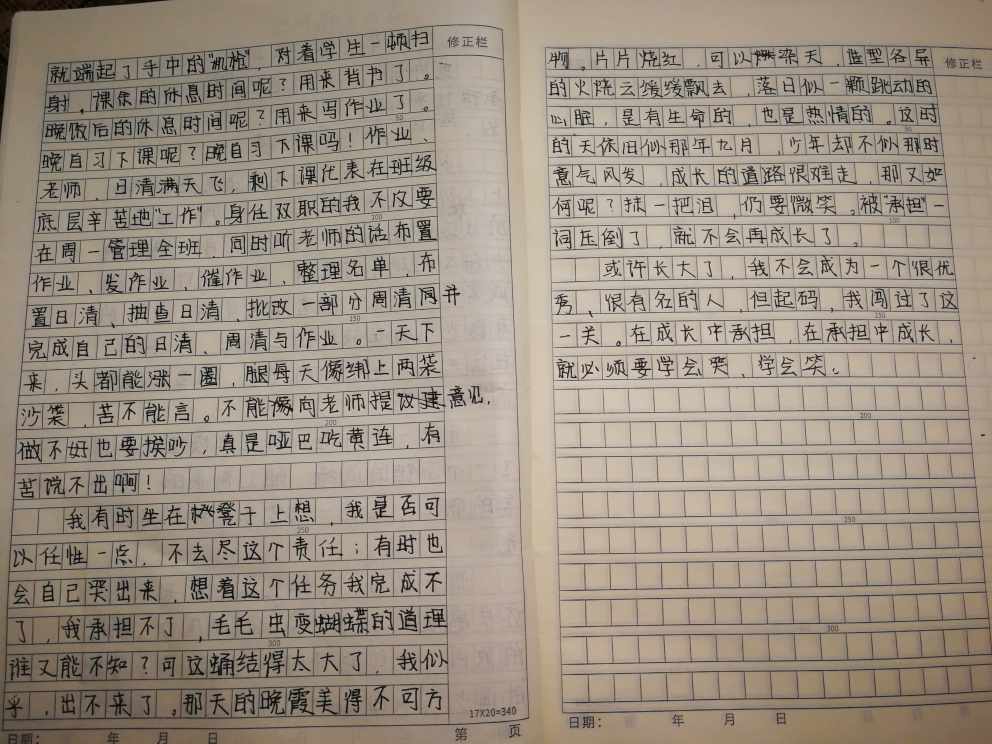 就端起了手中的"机枪"，对着学生一顿扫
修正栏
射。课余的休息时间呢？用来背书了。
晚饭后的休息时间呢？用来写作业了。
50
晚自习下课呢？晚自习下课吗！作业、
老师、日清满天飞，剩下课代表在班级
底层辛苦地"工作"。身任双职的我不仅要
100
在周一管理全班，同时听老师的话布置
作业、发作业、催作业、整理名单，布
置日清、抽查日清、批改一部分周清同并
150
完成自己的日清、周清与作业。一天下
来，头都能涨一圈，腿每天像绑上两袋
沙袋，苦不能言。不能像向老师提议建意见，
200
做不好也要挨吵，真是哑巴吃黄连，有
苦说不出啊！
我有时坐在凳子上想，我是否可
250
以任性一点，不去尽这个责任；有时也
会自己哭出来，想着这个任务我完成不
了，我承担不了，毛毛虫变蝴蝶的道理
300
谁又能不知？可这蛹结得太大了，我似
乎，出不来了。那天的晚霞美得不可方
17X20=340
日期： 年 月 日 第 页
物。片片烧红，可以染天，造型各异
修正栏
的火烧云缓缓飘去，落日似一颗跳动的
心脏，是有生命的，也是热情的。这时
50
的天依旧似那年九月，少年却不似那时
意气风发，成长的道路很难走，那又如
何呢？抹一把泪，仍要微笑。被"承担"一
100
词压倒了，就不会再成长了。
或许长大了，我不会成为一个很优
秀、很有名的人，但起码，我闯过了这
150
一关。在成长中承担，在承担中成长，
就必须要学会哭、学会笑。
200
250
300
日期： 年 月 日